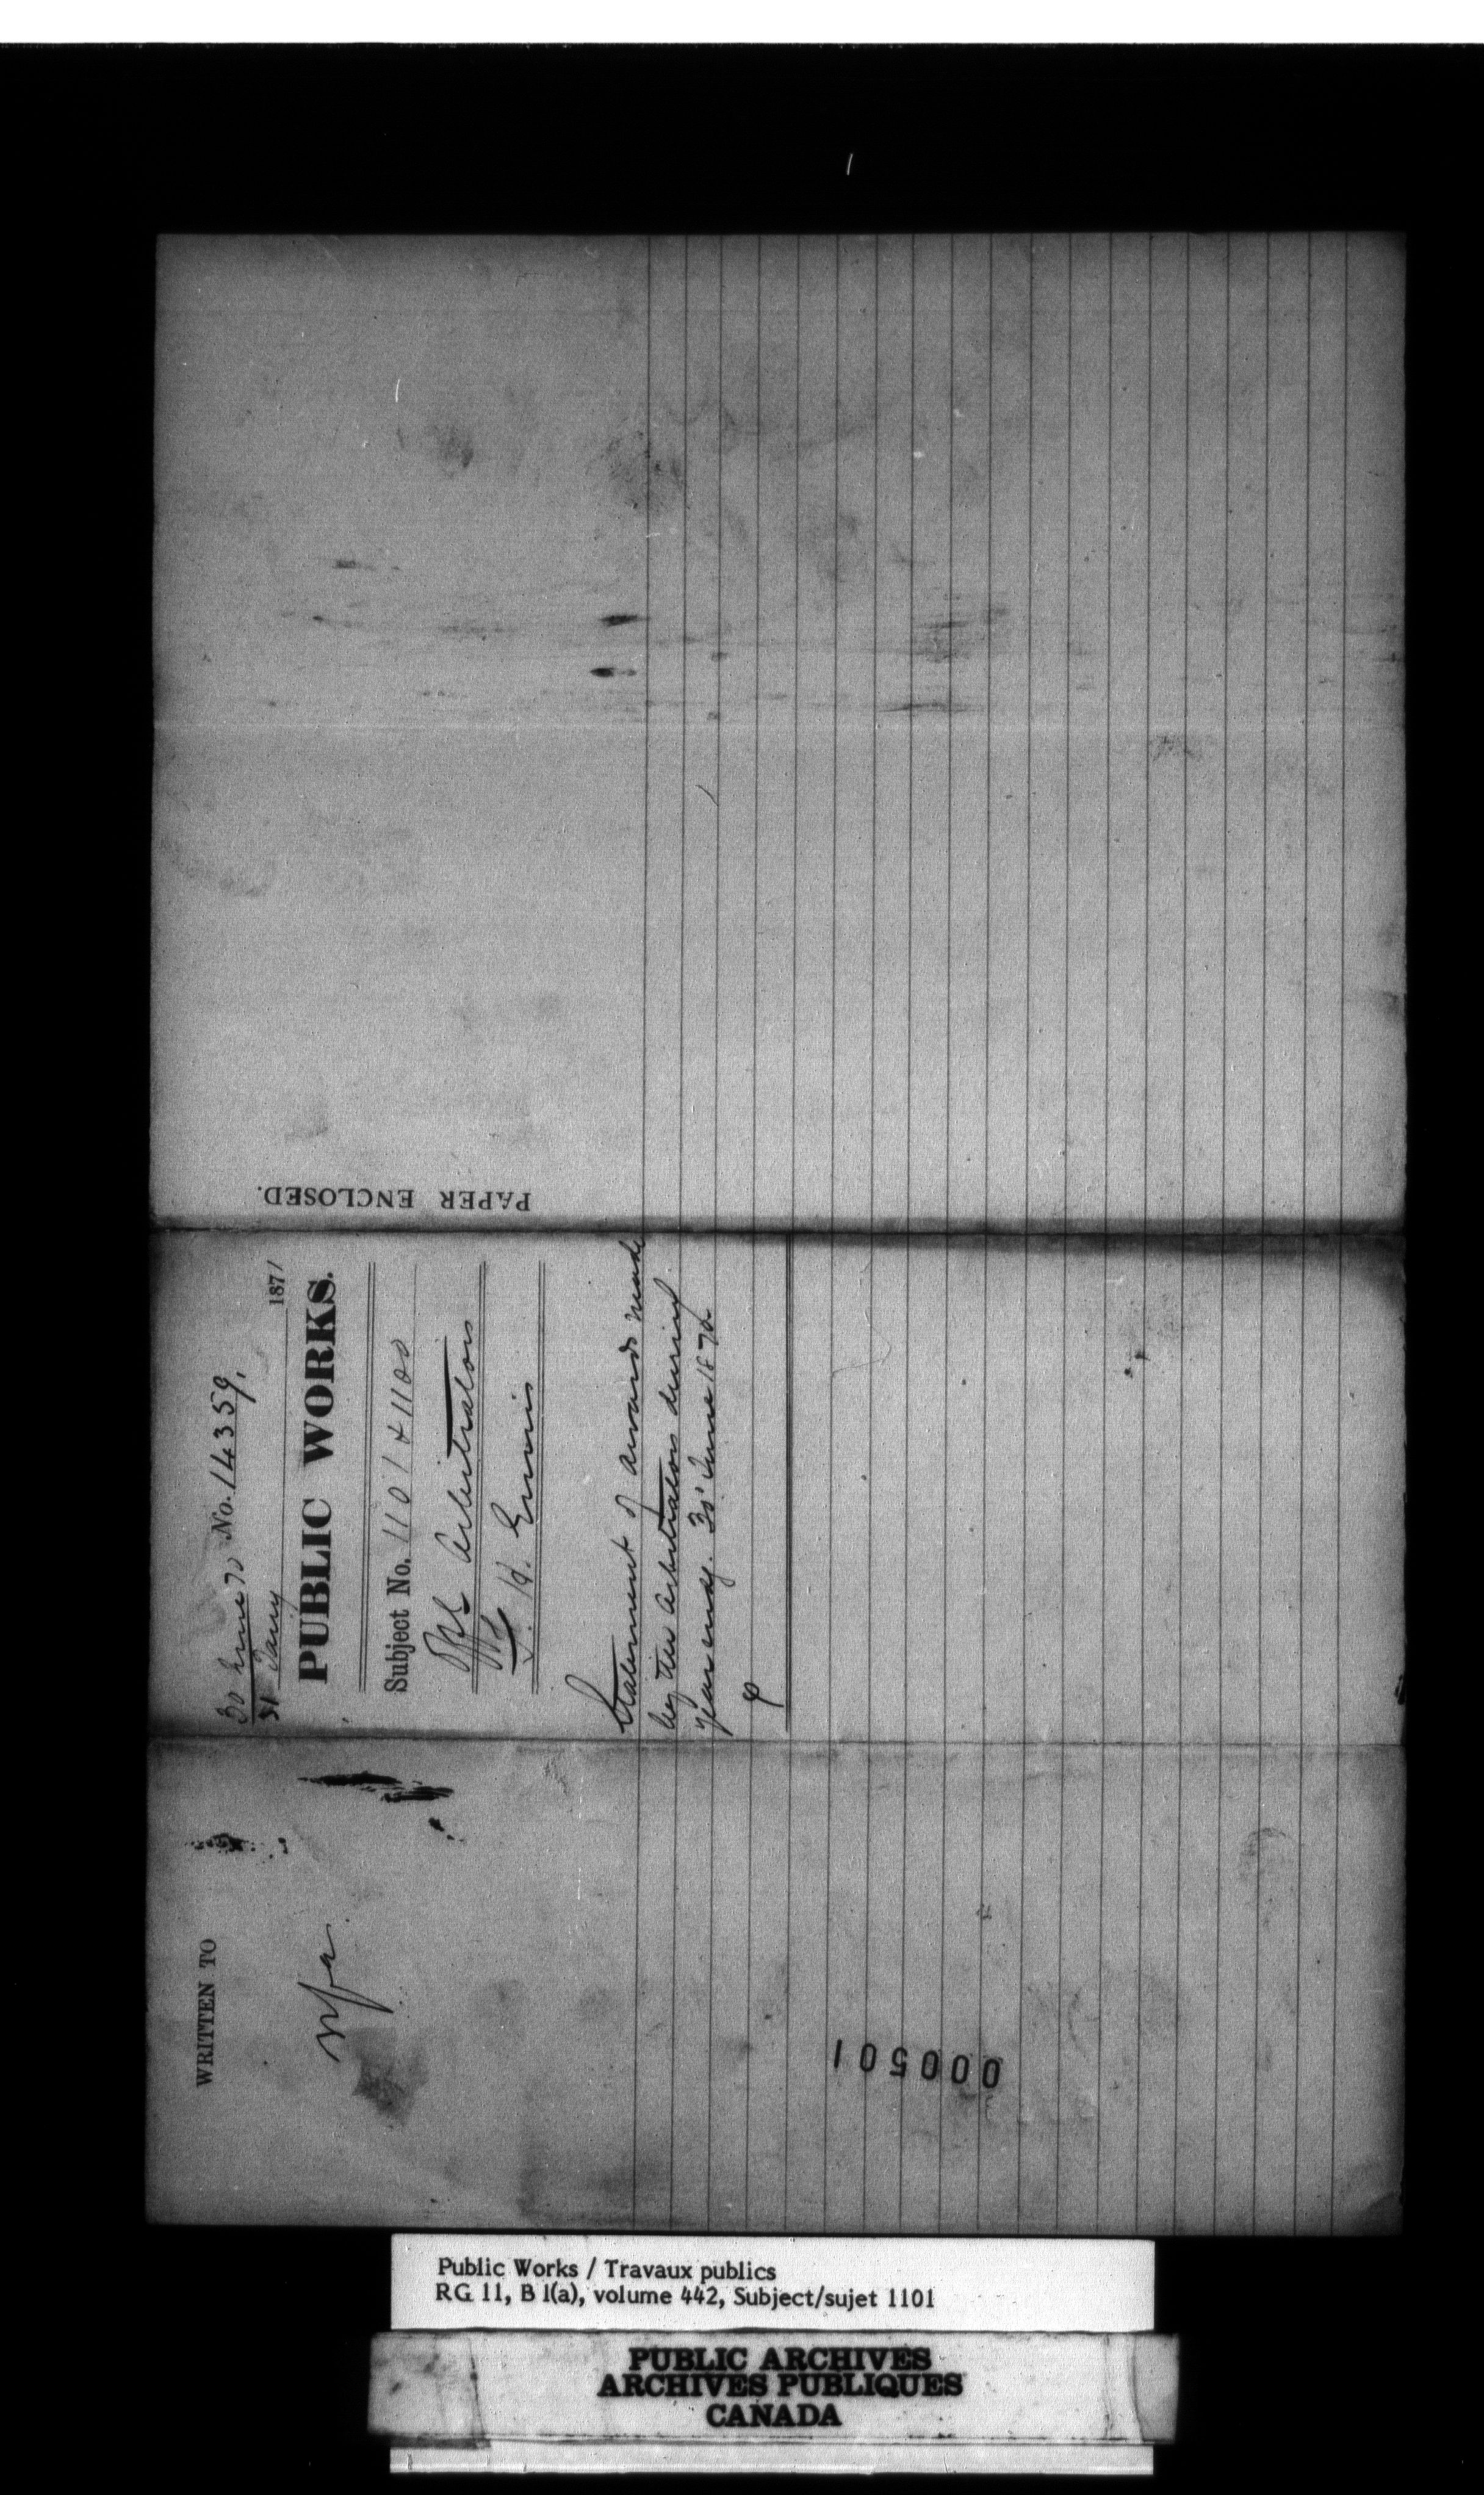 PAPER ENCLOSED.
30 June 70 No. 14359.
31 Jany 1871
PUBLIC WORKS.
Subject No. 1101 & 1100
Arbitrators
Ennis
Statement of awards made
by the Arbitrators during
year endg. 30' June 1870
WRITTEN TO
nfa.
000501
Public Works / Travaux publics
RG 11, B 1(a), volume 442, Subject/sujet 1101
PUBLIC ARCHIVES
ARCHIVES PUBLIQUES
CANADA